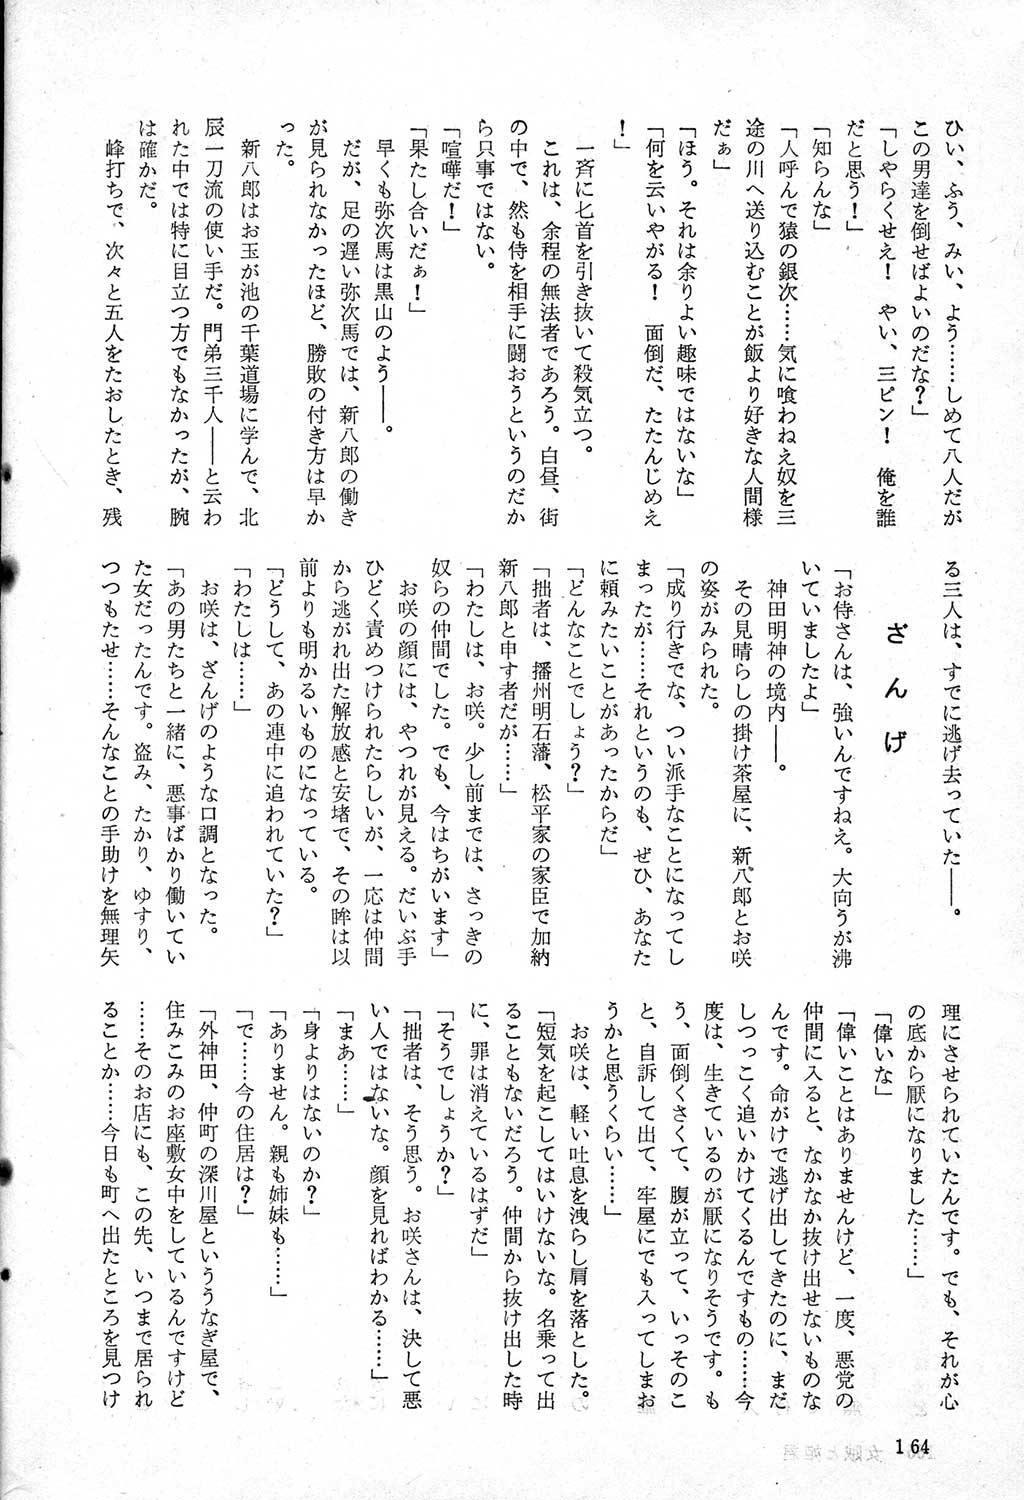 ひい、ふう、みい、よう……しめて八人だが
この男達を倒せばよいのだな？」
「しゃらくせえ！　やい、三ピン！　俺を誰
だと思う！」
「知らんな」
「人呼んで猿の銀次……気に喰わねえ奴を三
途の川へ送り込むことが飯より好きな人間様
だぁ」
「ほう。それは余りよい趣味ではないな」
「何を云いやがる！　面倒だ、たたんじめえ
！」
　一斉に匕首を引き抜いて殺気立つ。
　これは、余程の無法者であろう。白昼、街
の中で、然も侍を相手に闘おうというのだか
ら只事ではない。
「喧嘩だ！」
「果たし合いだぁ！」
　早くも弥次馬は黒山のよう――。
　だが、足の遅い弥次馬では、新八郎の働き
が見られなかったほど、勝敗の付き方は早か
った。
　新八郎はお玉が池の千葉道場に学んで、北
辰一刀流の使い手だ。門弟三千人――と云わ
れた中では特に目立つ方でもなかったが、腕
は確かだ。
　峰打ちで、次々と五人をたおしたとき、残
る三人は、すでに逃げ去っていた――。
ざんげ
「お侍さんは、強いんですねえ。大向うが沸
いていましたよ」
　神田明神の境内――。
　その見晴らしの掛け茶屋に、新八郎とお咲
の姿がみられた。
「成り行きでな、つい派手なことになってし
まったが……それというのも、ぜひ、あなた
に頼みたいことがあったからだ」
「どんなことでしょう？」
「拙者は、播州明石藩、松平家の家臣で加納
新八郎と申す者だが……」
「わたしは、お咲。少し前までは、さっきの
奴らの仲間でした。でも、今はちがいます」
　お咲の顔には、やつれが見える。だいぶ手
ひどく責めつけられたらしいが、一応は仲間
から逃がれ出た解放感と安堵で、その眸は以
前よりも明かるいものになっている。
「どうして、あの連中に追われていた？」
「わたしは……」
　お咲は、ざんげのような口調となった。
「あの男たちと一緒に、悪事ばかり働いてい
た女だったんです。盗み、たかり、ゆすり、
つつもたせ……そんなことの手助けを無理矢
理にさせられていたんです。でも、それが心
の底から厭になりました……」
「偉いな」
「偉いことはありませんけど、一度、悪党の
仲間に入ると、なかなか抜け出せないものな
んです。命がけで逃げ出してきたのに、まだ
しつっこく追いかけてくるんですもの……今
度は、生きているのが厭になりそうです。も
う、面倒くさくて、腹が立って、いっそのこ
と、自訴して出て、牢屋にでも入ってしまお
うかと思うくらい……」
　お咲は、軽い吐息を洩らし肩を落とした。
「短気を起こしてはいけないな。名乗って出
ることもないだろう。仲間から抜け出した時
に、罪は消えているはずだ」
「そうでしょうか？」
「拙者は、そう思う。お咲さんは、決して悪
い人ではないな。顔を見ればわかる……」
「まあ……」
「身よりはないのか？」
「ありません。親も姉妹も……」
「で……今の住居は？」
「外神田、仲町の深川屋といううなぎ屋で、
住みこみのお座敷女中をしているんですけど
……そのお店にも、この先、いつまで居られ
ることか……今日も町へ出たところを見つけ
164